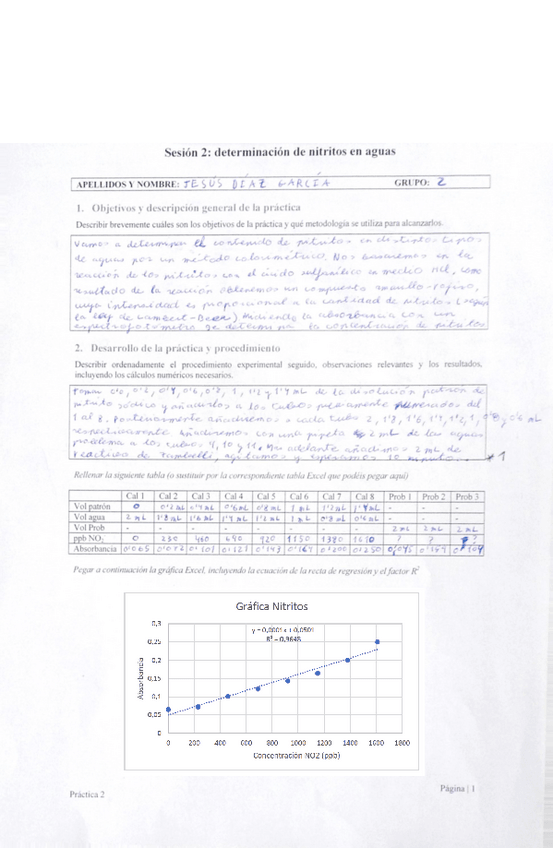 Sesión 2: determinación de nitritos en aguas
APELLIDOS Y NOMBRE: JESÚS DÍAZ GARCÍA GRUPO: 2
1. Objetivos y descripción general de la práctica
Describir brevemente cuáles son los objetivos de la práctica y qué metodología se utiliza para alcanzarlos.
Vamos a determinar el contenido de nitritos en distintos tipos
de aguas por un método colorimétrico. Nos basaremos en la
reacción de los nitritos con el ácido sulfanílico en medio HCl, como
resultado de la reacción obtenemos un compuesto amarillo-rojizo,
cuya intensidad es proporcional a la cantidad de nitritos (según
la ley de Lambert-Beer) Midiendo la absorbancia con un
espectrofotómetro se determina la concentración de nitritos
2. Desarrollo de la práctica y procedimiento
Describir ordenadamente el procedimiento experimental seguido, observaciones relevantes y los resultados,
incluyendo los cálculos numéricos necesarios.
Tomar 0'0, 0'2, 0'4, 0'6, 0'8, 1, 1'2 y 1'4 mL de la disolución patrón de
nitrito sódico y añadirlos a los tubos previamente numerados del
1 al 8. Posteriormente añadiremos a cada tubo 2, 1'8, 1'6, 1'4, 1'2, 1, 0'8, 0'6 mL
respectivamente añadiremos con una pipeta 2 mL de las aguas
problema a los tubos 9, 10 y 11. adelante añadimos 2 mL de
reactivo de Zambelli, agitamos y esperamos 10 minutos. *1
Rellenar la siguiente tabla (o sustituir por la correspondiente tabla Excel que podéis pegar aquí)
Cal 1 Cal 2 Cal 3 Cal 4 Cal 5 Cal 6 Cal 7 Cal 8 Prob 1 Prob 2 Prob 3
Vol patrón 0 0'2 mL 0'4 mL 0'6 mL 0'8 mL 1 mL 1'2 mL 1'4 mL - - -
Vol agua 2 mL 1'8 mL 1'6 mL 1'4 mL 1'2 mL 1 mL 0'8 mL 0'6 mL - - -
Vol Prob - - - - - - - - 2 mL 2 mL 2 mL
ppb NO2 0 230 460 690 920 1150 1380 1610 ? ? ?
Absorbancia 0'065 0'072 0'101 0'121 0'143 0'167 0'200 0'250
Pegar a continuación la gráfica Excel, incluyendo la ecuación de la recta de regresión y el factor R²
Gráfica Nitritos
y = 0,0001x + 0,0501
R² = 0,9648
0,3
0,25
0,2
0,15
0,1
0,05
0
Absorbancia
0 200 400 600 800 1000 1200 1400 1600 1800
Concentración NO2 (ppb)
Práctica 2 Página | 1